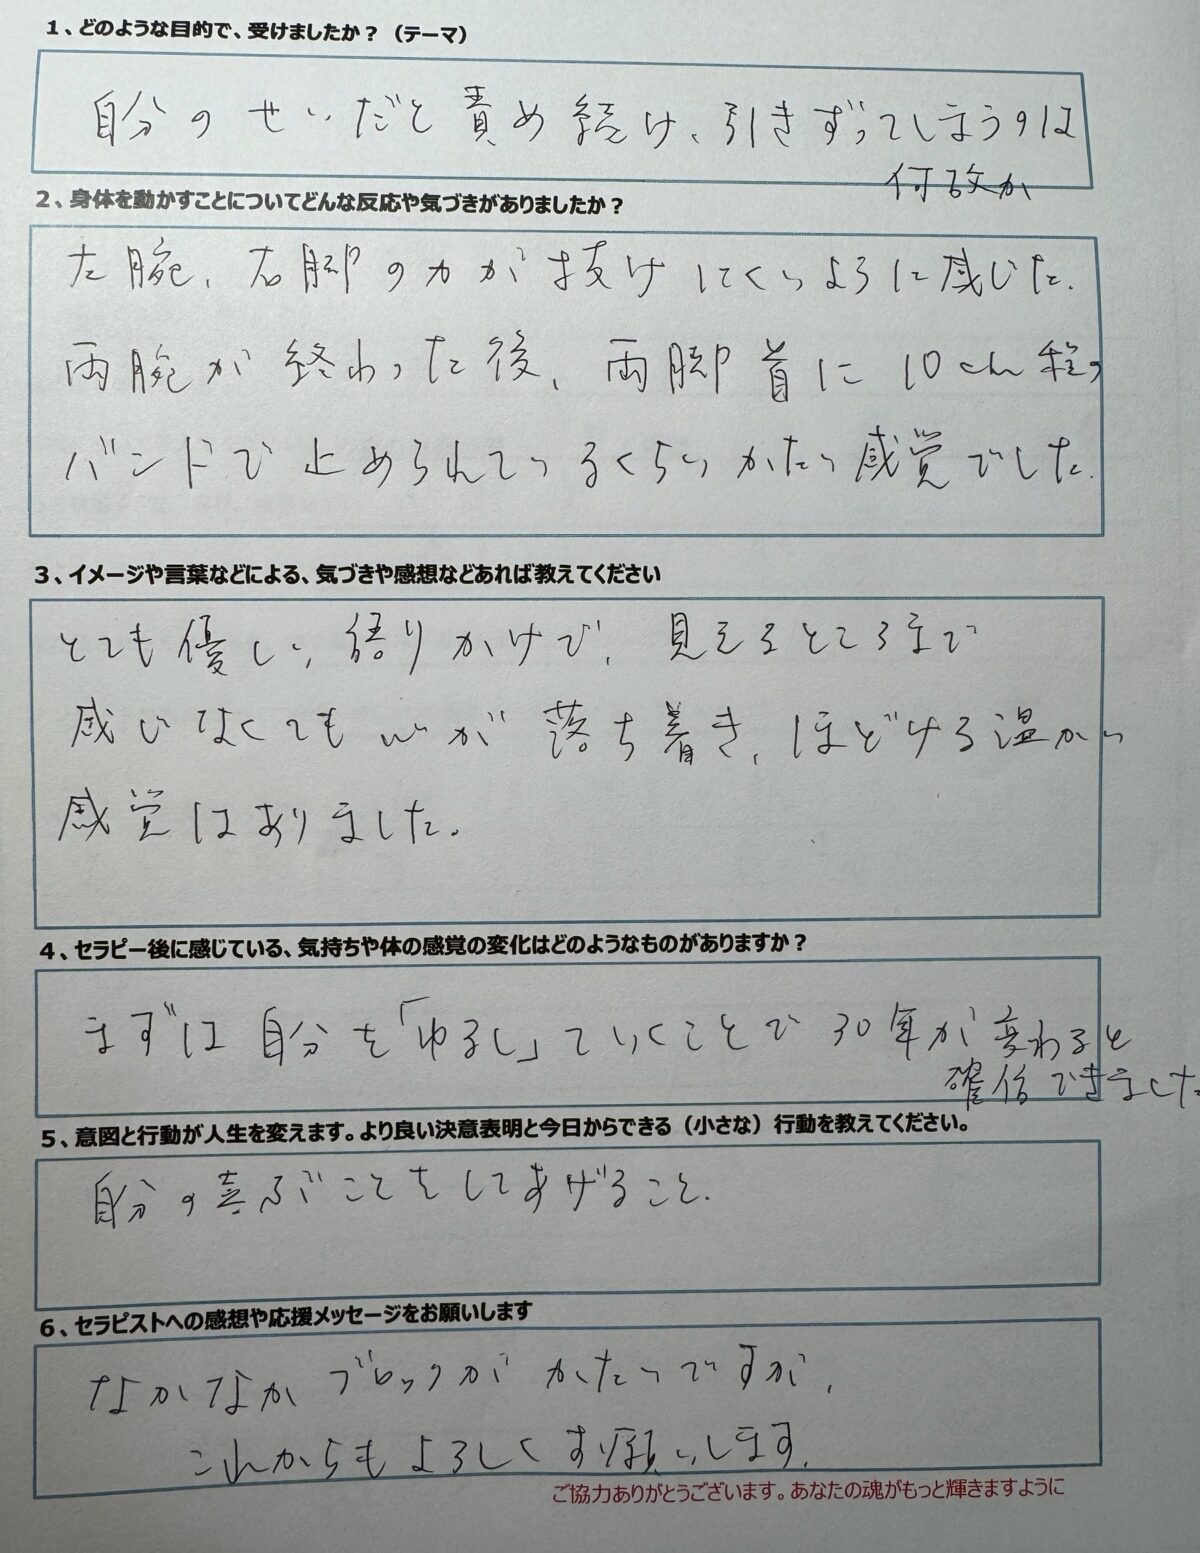 1、どのような目的で、受けましたか？（テーマ）
自分のせいだと責め続け、引きずってしまうのは
何故か
2、身体を動かすことについてどんな反応や気づきがありましたか？
左腕、右脚の力が抜けにくいように感じた.
両腕が終わった後、両脚首に10cm程の
バンドで止められているくらいかたい感覚でした.
3、イメージや言葉などによる、気づきや感想などあれば教えてください
とても優しい、語りかけで、見えるところまで
感じなくても心が落ち着き、ほどける温かい
感覚はありました。
4、セラピー後に感じている、気持ちや体の感覚の変化はどのようなものがありますか？
まずは自分を「ゆるし」ていくことで30年が変わると
確信できました
5、意図と行動が人生を変えます。より良い決意表明と今日からできる（小さな）行動を教えてください。
自分の喜ぶことをしてあげること.
6、セラピストへの感想や応援メッセージをお願いします
なかなかブロックがかたいですが、
これからもよろしくお願いします.
ご協力ありがとうございます。あなたの魂がもっと輝きますように